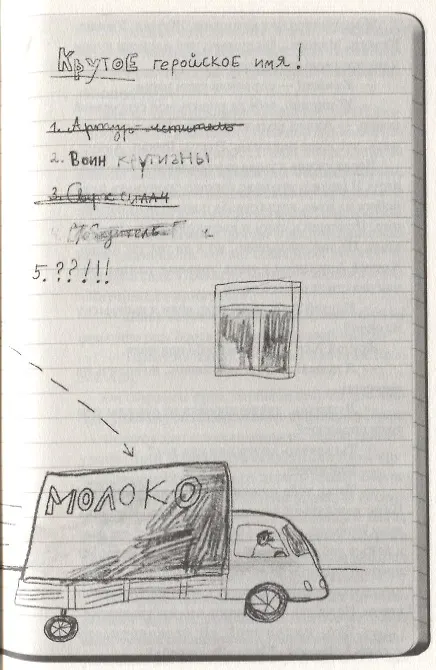 КрутоЕ геройскоЕ имя!
1. Артур-мститель
2. Воин крутизны
3. Сверхсилач
4. Победитель
5. ??!!!
МОЛОКО